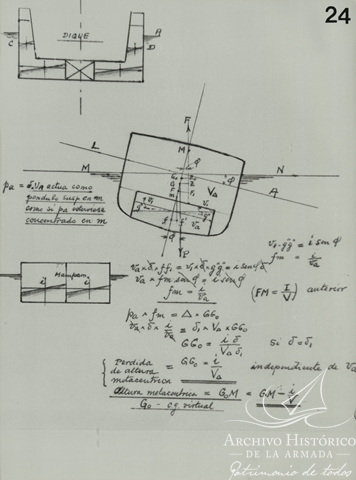 24
DIQUE
C
A
D
F
L
M
M
N
A
Va
P
pa = δ₁Va actua como
pendulo susp en m
como si pa estuviese
concentrado en m
Mamparo
i
i
v₁·gg' = i sen φ
fm = i/va
va × δ₁ × ff₁ = v₁ × δ₁ × g'g'' = i sen φ δ₁
va × fm sen φ = i sen φ
fm = i/va
(FM = I/V) anterior
pa × fm = Δ × GG₀
va × δ₁ × i/va = δ₁ × Va × GG₀
GG₀ = i δ/Va δ₁ Si δ = δ₁
Perdida de altura metacentrica = GG₀ = i/Va independiente de va
Altura metacentrica = G₀M = GM − i/V
G₀ - c.g. virtual
ARCHIVO HISTÓRICO
DE LA ARMADA
Patrimonio de todos